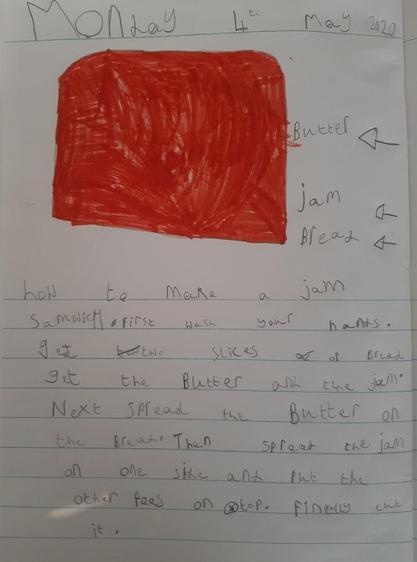 Monday 4th May 2020
Butter
jam
Bread
how to make a jam
samwich. first wash your hands.
get two slices of Bread
get the Butter and the jam.
Next spread the Butter on
the Bread. Then spread the jam
on one side and put the
other pees on top. Finelly cut
it.